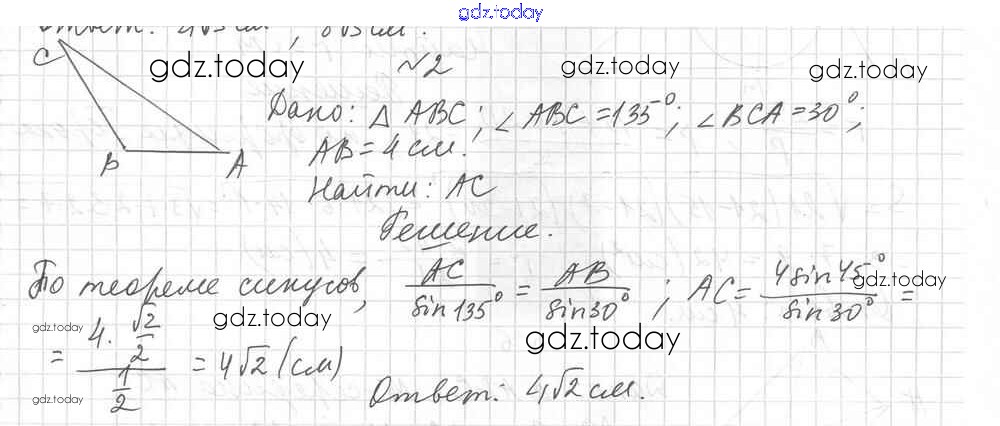 gdz.today
Ответ: см, см.
C
gdz.today
№2
gdz.today
gdz.today
Дано: △ ABC; ∠ABC = 135°; ∠BCA = 30°;
B A
AB = 4 см.
Найти: AC
Решение.
По теореме синусов, AC/sin135° = AB/sin30°; AC = 4sin45°/sin30° =
gdz.today
gdz.today
gdz.today
gdz.today
= (4·√2/2)/(1/2) = 4√2 (см)
gdz.today
Ответ: 4√2 см.